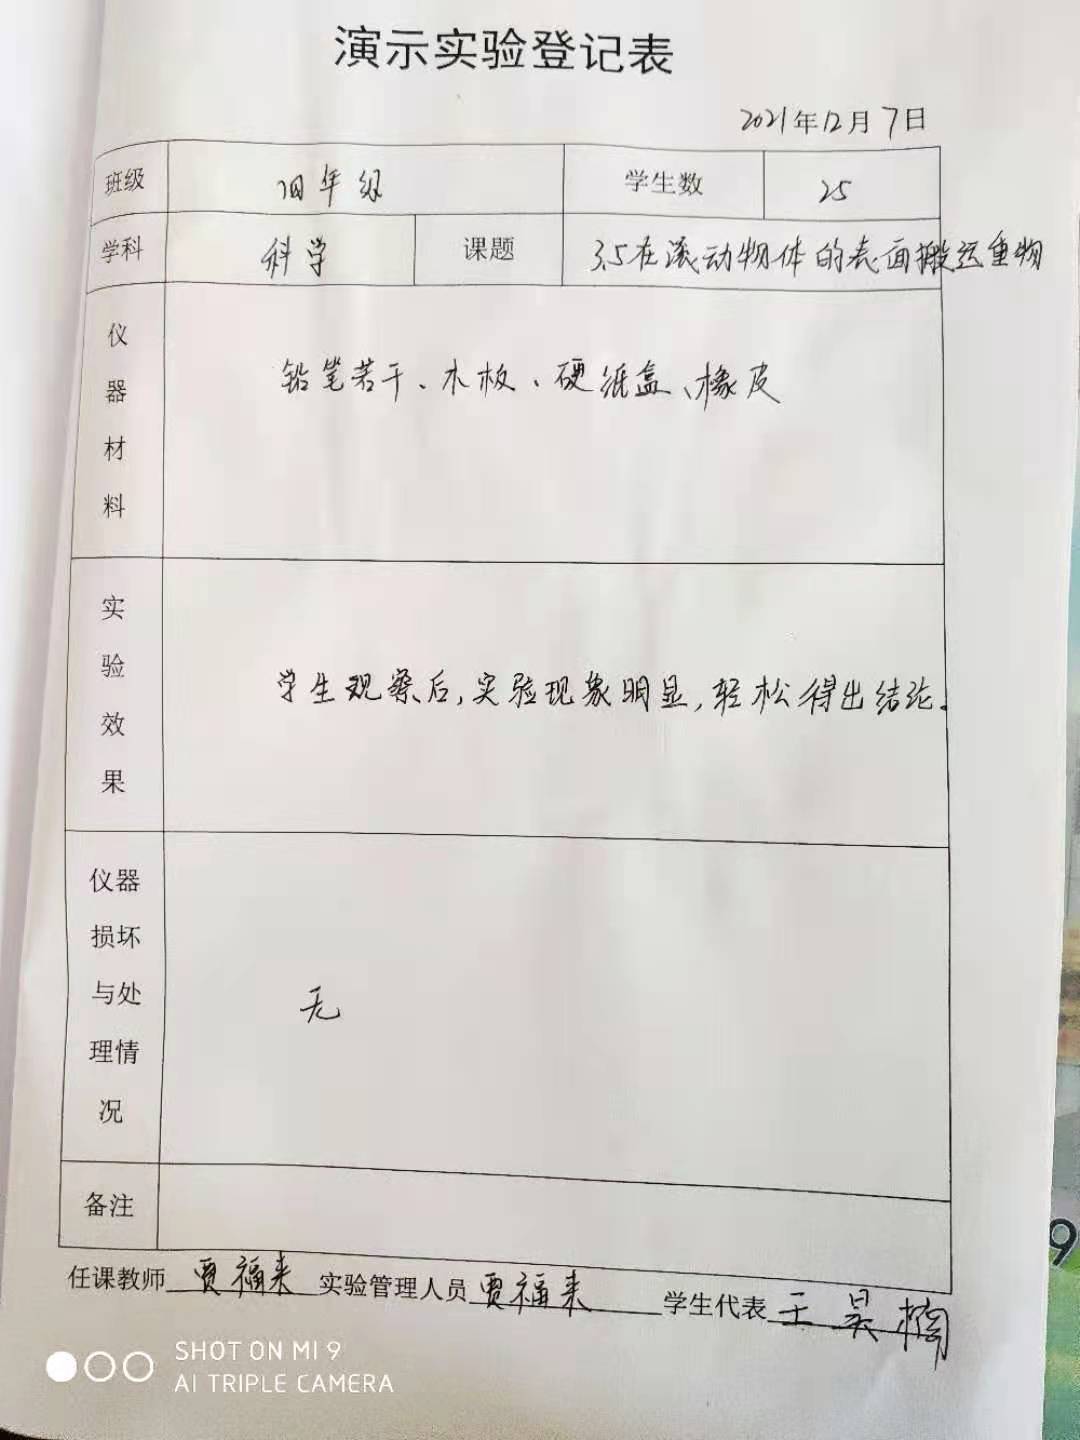 演示实验登记表
2021年12月7日
班级 四年级 学生数 25
学科 科学 课题 3.5在滚动物体的表面搬运重物
仪器材料 铅笔若干、木板、硬纸盒、橡皮
实验效果 学生观察后,实验现象明显,轻松得出结论。
仪器损坏与处理情况 无
备注
任课教师 贾福来 实验管理人员 贾福来 学生代表 王昊楠
SHOT ON MI 9
AI TRIPLE CAMERA
9